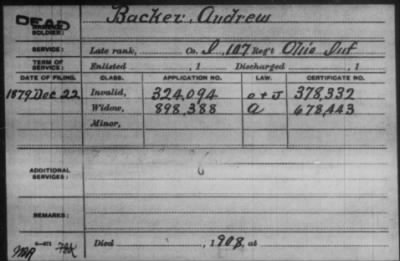 DEAD Backer, Andrew
SOLDIER:
SERVICE: Late rank, Co. I, 107 Reg't Ohio Inf
TERM OF SERVICE: Enlisted , 1 Discharged , 1
DATE OF FILING. CLASS. APPLICATION NO. LAW. CERTIFICATE NO.
1879 Dec 22 Invalid, 324,094 378,332
Widow, 898,388 a 678,443
Minor,
ADDITIONAL SERVICES:
REMARKS:
Died , 1908, at